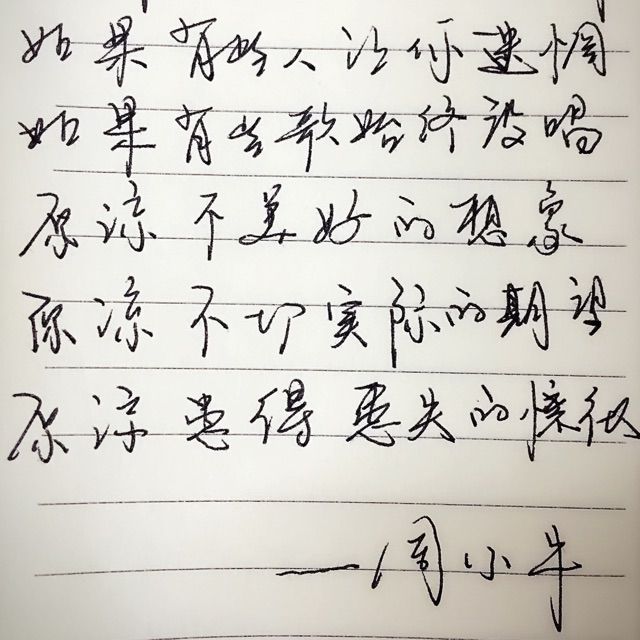 如果有些人让你遗惘
如果有些歌始终没唱
原谅不美好的想象
原谅不切实际的期望
原谅患得患失的憧彷
——周小牛